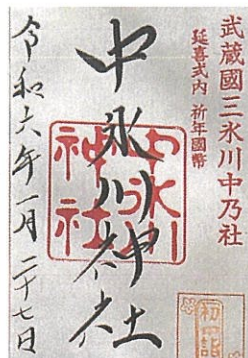 武蔵國三氷川中乃社
延喜式内 祈年國幣
中氷川神社
中氷川
神社
令和六年一月二十七日